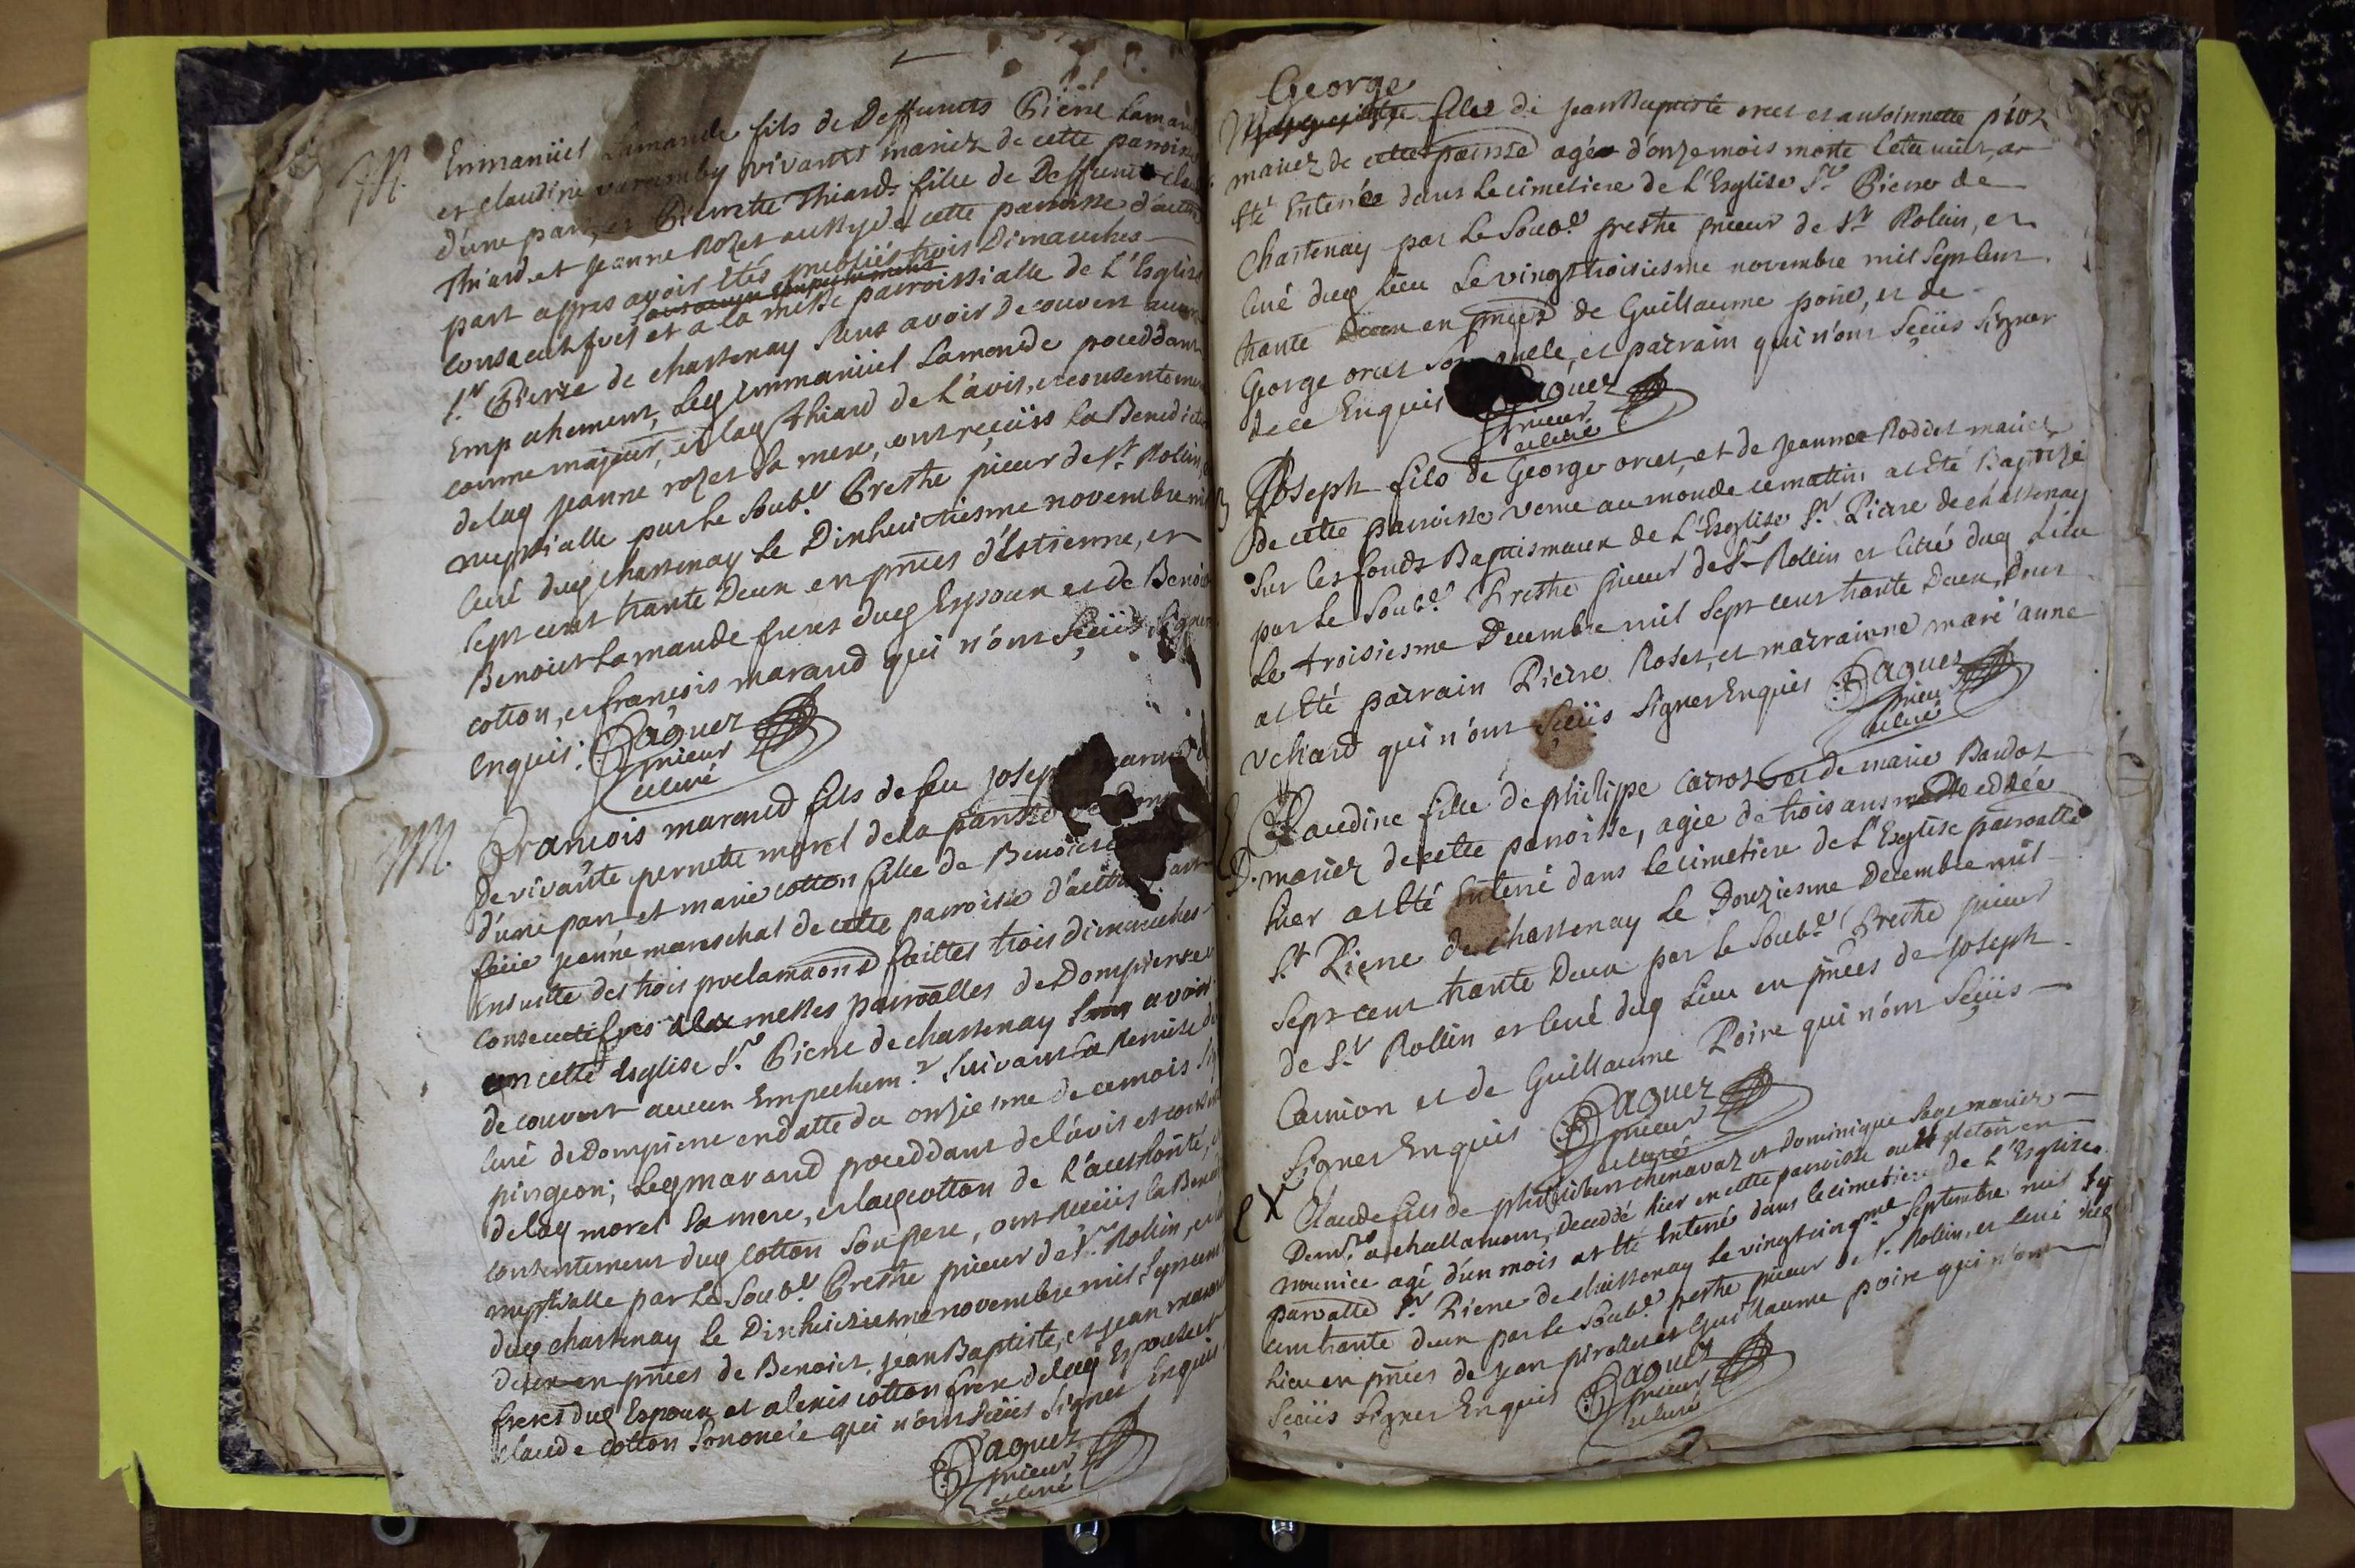 M. Emmanüel Lamande fils de Deffunts Pierre Laman
et claudine varamby vivants mariez de cette parroisse
d'une part, et Pierrette Thiard fille de Deffunt clau
Thiard et jeanne Rozet au Rys de cette parroisse d'autre
part apres avoir etés publiés trois Dimanches
consecutifves et a la messe parroissialle de L'Esglise
sans aucun empechement
St Pierre de chastenay sans avoir decouvert aucun
Empechement, Leq Emmanüel Lamande proceddant
comme majeur, et laq Thiard de L'avis, et consentement
de laq jeanne rozet sa mere, ont reçeüs la Benedicti
nuptialle par le soubé Prestre prieur de St Rolin,
Curé duq chastenay le Dixhuictiesme novembre mil
sept cent trante Deux en pnces d'Estienne, et
Benoict Lamande freres duq Espoux et de Benoi
cotton, et françois marand qui n'ont sçeüs signer
enquis; Paquez
prieur
et curé
M. François marand fils de feu joseph marand
de vivante pernette morel de la parrsse de Dom
d'une part et marie cotton fille de Benoict
feüe jeanne mareschal de cette parroisse d'autre part
Ensuitte des trois proclamaons faittes trois dimanches
consecutifves aux messes parroalles de Dompierre
en cette Esglise St Pierre de chastenay sans avoir
decouvert aucun Empechemt suivant la Remise du
curé de Dompierre en datte du onziesme de ce mois sig
pingeon; Leq marand proceddant de L'avis et consent
de laq morel sa mere, et laq cotton de L'authorité, et
consentement duq cotton son pere, ont receüs la Bened
nuptialle par le soubé Prestre prieur de St Rollin, et
duq chastenay le Dixhuictiesme novembre mil sept cent
deux en pnces de Benoict, jean Baptiste, et jean maran
freres duq Espoux et alexis cotton frere de laq Espouse et
claude cotton son oncle qui n'ont sceüs signer Enquis
Paquez
prieur
et curé
George
Margueritte filse de jean Baptiste orcet et anthoinnette pioz
mariez de cette parroisse agée d'onze mois morte cette nuit, a
été Enterrée dans le cimetiere de L'Esglise St Pierre de
Chastenay par le Soubé prestre prieur de St Rolin, et
curé duq Lieu le vingttroisiesme novembre mil sept cent
trante deux en pnces de Guillaume poire, et de
George orcet son oncle, et parrain qui n'ont sçeüs signer
de ce Enquis Paquez
prieur
et curé
B Joseph fils de George orcet, et de jeanne Roddet mariez
de cette parroisse venu au monde ce matin at Eté Baptizé
sur les fonds Baptismaux de L'Esglise St Pierre de chastenay
par le Soubé Prestre prieur de St Rollin et curé duq Lieu
le troisiesme Decembre mil sept cent trante Deux, dont
at Eté parrain Pierre Roset, et marrainne marie anne
vchard qui n'ont sçeüs signer Enquis Paquez
prieur
et curé
D. Claudine fille de philippe carroz et de marie Bardoz
mariez de cette parroisse, agée de trois ans decedée
hier at Eté Enterré dans le cimetiere de L'Esglise parroalle
St Pierre de chastenay le Douziesme Decembre mil
sept cent trante Deux par le Soubé Prestre prieur
de St Rollin et curé duq Lieu en pnces de joseph
Camion et de Guillaume Poire qui n'ont sçeüs
signer Enquis Paquez
prieur
et curé
X Claude fils de philibert chenavaz et dominique sage mariez
Demts a challamont, deceddé hier en cette parroisse en
nourrice agé d'un mois at eté Enterré dans le cimetiere de L'Esglise
parroalle St Pierre de chastenay le vingtcinqme septembre mil sep
cent trante deux par le Soubé prestre prieur de St Rolin, et curé duq
Lieu en pnces de jean pirollet et Guillaume poire qui n'ont
sçeüs signer Enquis Paquez
prieur
et curé